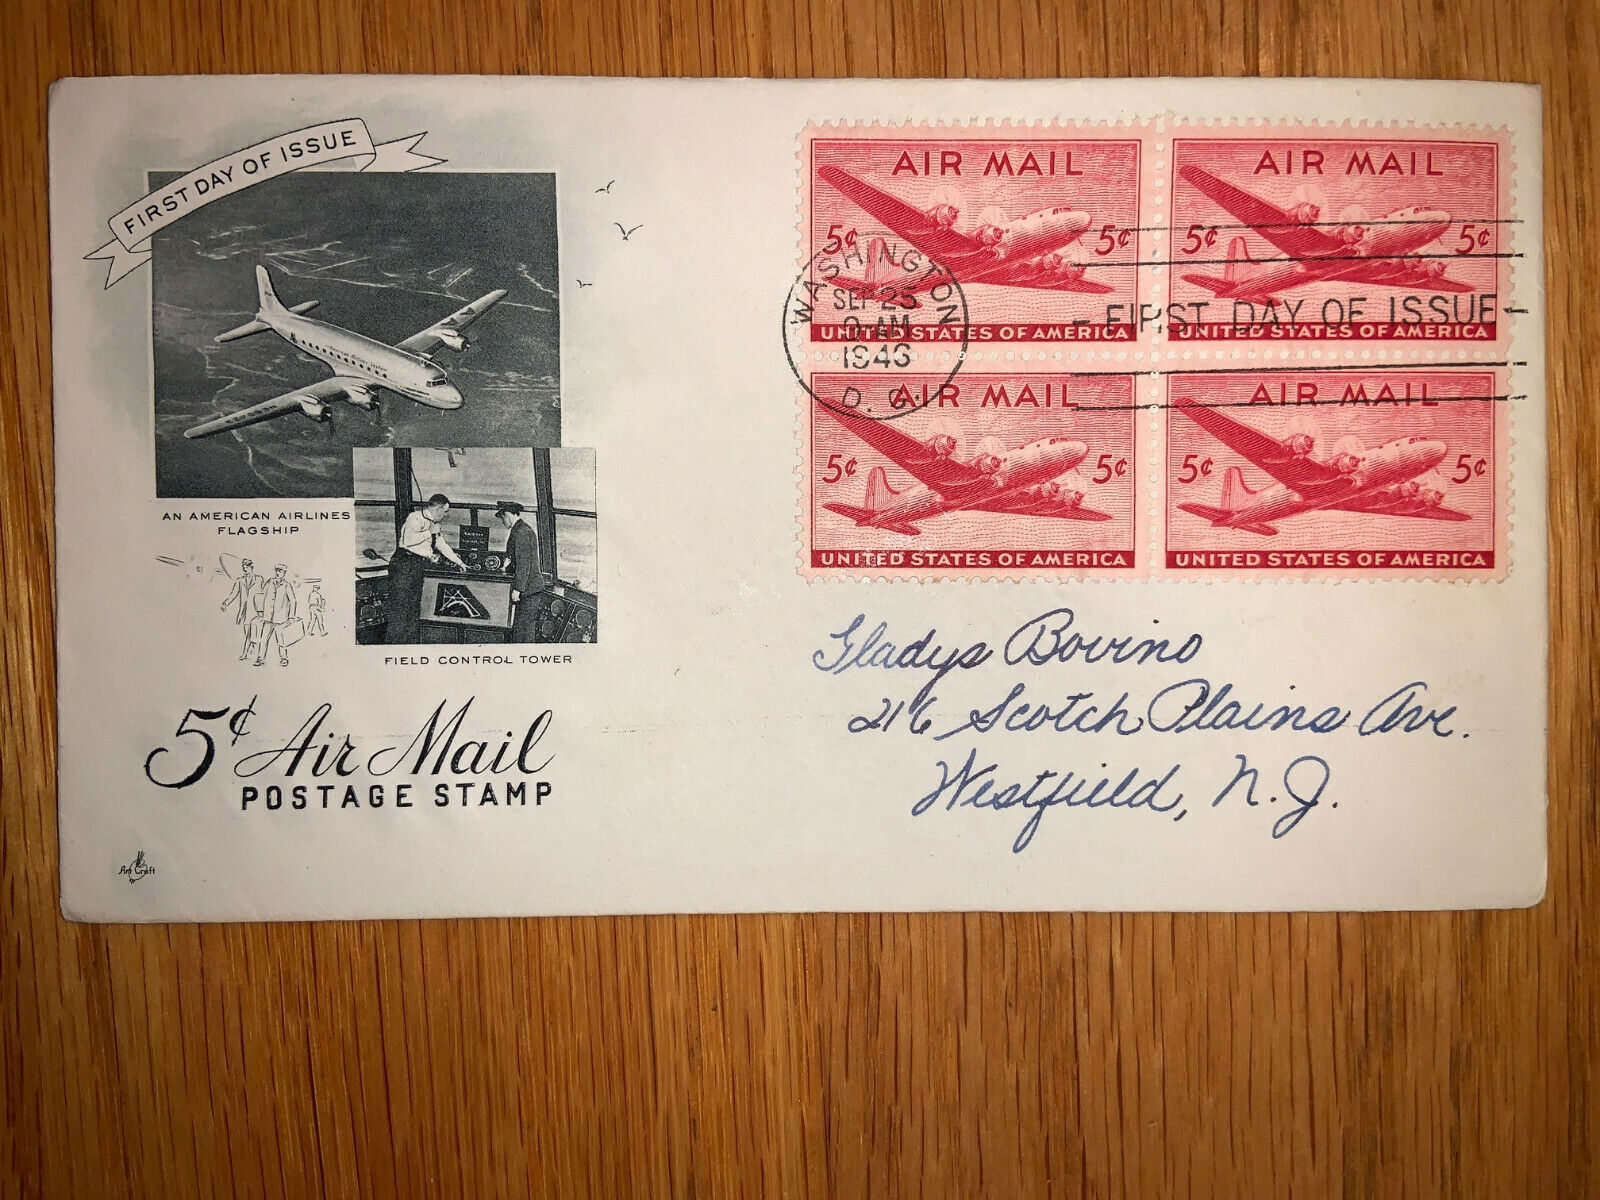 FIRST DAY OF ISSUE
AN AMERICAN AIRLINES
FLAGSHIP
FIELD CONTROL TOWER
5¢ Air Mail
POSTAGE STAMP
Art Craft
AIR MAIL
5¢ 5¢
UNITED STATES OF AMERICA
AIR MAIL
5¢ 5¢
UNITED STATES OF AMERICA
AIR MAIL
5¢ 5¢
UNITED STATES OF AMERICA
AIR MAIL
5¢ 5¢
UNITED STATES OF AMERICA
WASHINGTON
SEP 25
9-AM
1946
D. C.
-FIRST DAY OF ISSUE-
Gladys Bovino
216 Scotch Plains Ave.
Westfield, N.J.